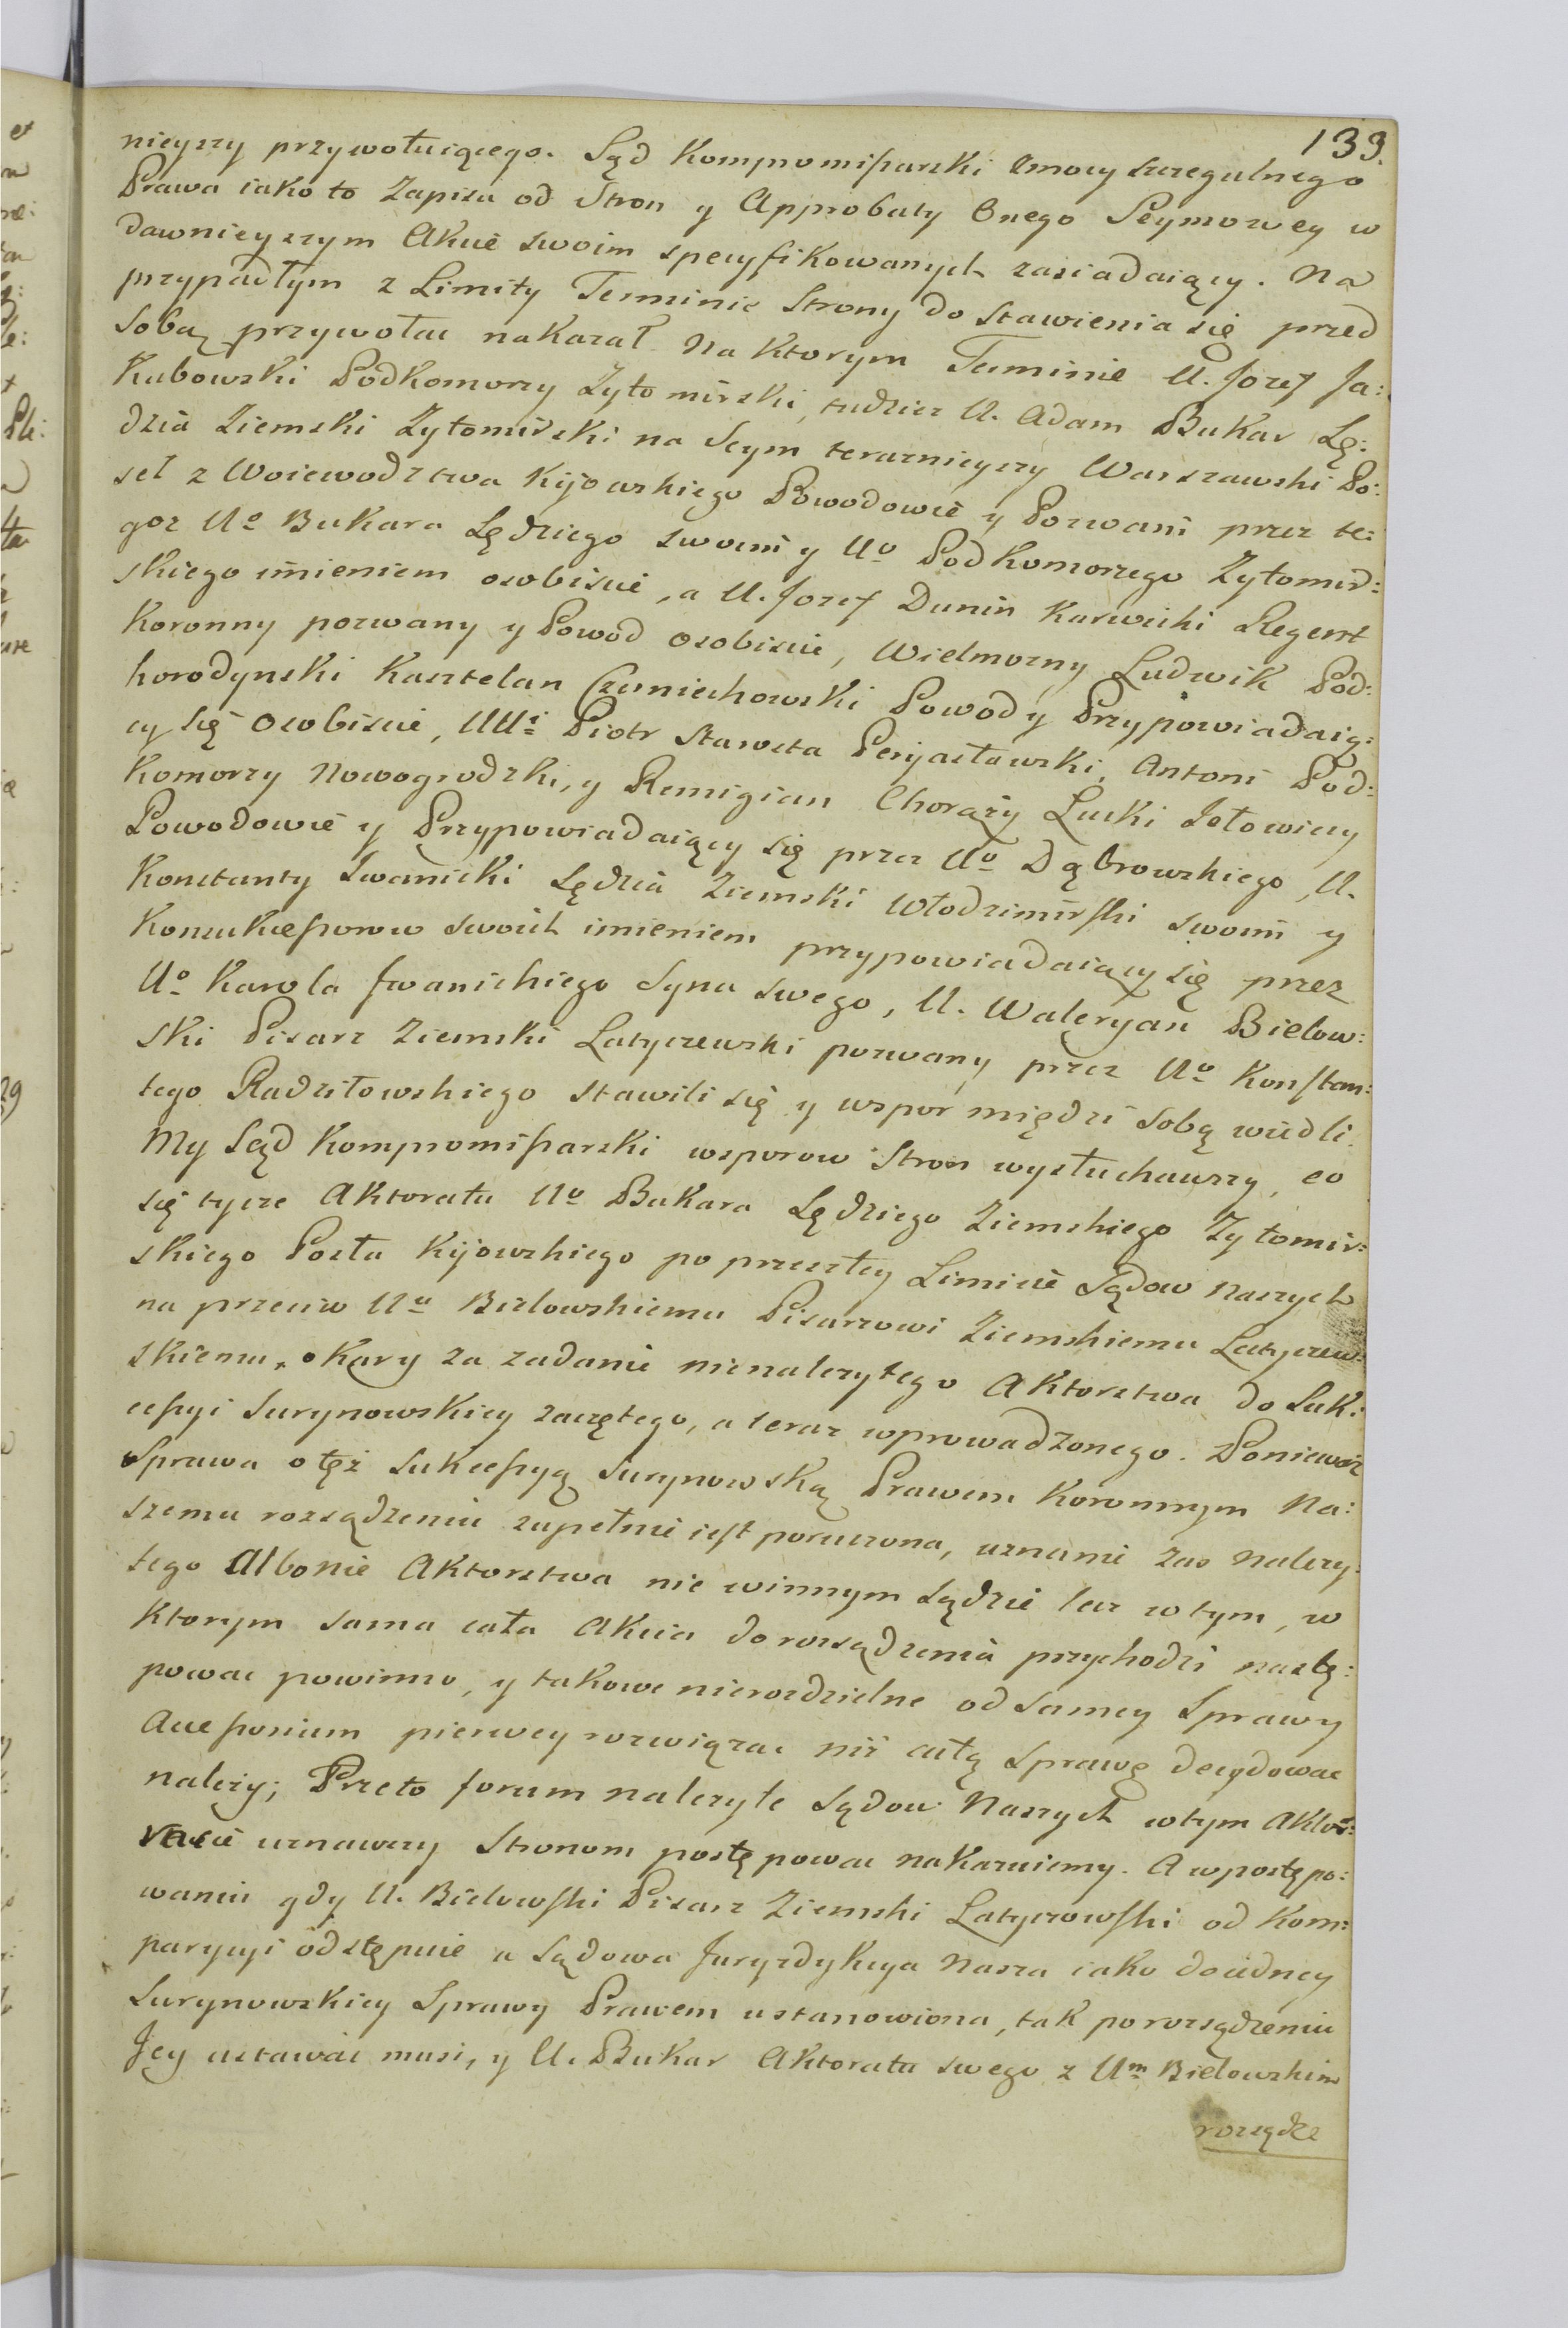 139.
nieyszy przywołuiącego. Sąd Kompromissarski z mocy szczegulnego
Prawa iako to Zapisu od Stron y Approbaty Onego Seymowey w
dawnieyszym Akcie swoim specyfikowanych zasiadaiący. Na
przypadłym z Limity Terminie Strony do stawienia się przed
Sobą przywołac nakazał. Na ktorym Terminie U. Jozef Ja:
Kubowski Podkomorzy Zytomirski, tudziez U. Adam Bukar Sę:
dzia Ziemski Zytomirski na Seym teraznieyszy Warszawski Po:
seł z Woiewodztwa Kijowskiego Powodowie y Pozwani przez te:
goz Uo Bukara Sędziego swoim y Uo Podkomorzego Zytomir:
skiego imieniem osobiscie, a U. Jozef Dunin Karwicki Regent
Koronny pozwany y Powod osobiscie, Wielmozny Ludwik Pod:
horodynski Kasztelan Czerniechowski Powod y Przypowiadaią:
cy się Osobiscie, UUi Piotr Starosta Perijasławski, Antoni Pod:
Komorzy Nowogrodzki, y Remigian Chorąży Łucki Jełowiccy
Powodowie y Przypowiadaiący się przez Uo Dąbrowskiego, U.
Konstanty Iwanicki Sędzia Ziemski Włodzimirski swoim y
Konsukcessorow swoich imieniem przypowiadaiący się przez
Uo Karola Iwanickiego Syna swego, U. Waleryan Bielow:
ski Pisarz Ziemski Latyczewski pozwany przez Uo Konstan:
tego Radziłowskiego stawili się y wspor między sobą wiedli.
My Sąd Kompromissarski wsporow Stron wysłuchawszy, co
się tycze Aktoratu Uo Bukara Sędziego Ziemskiego Zytomir:
skiego Posła Kijowskiego po przeszłey Limicie Sądow Naszych
na przeciw Uu Bielowskiemu Pisarzowi Ziemskiemu Latyczew:
skiemu, o Kary za zadanie nienalezytego Aktorstwa do Suk:
cessyi Surynowskiey zaczętego, a teraz wprowadzonego. Poniewaz
Sprawa o tęż Sukcessyą Surynowską Prawem Koronnym Na:
szemu rozsądzeniu zupełnie iest poruczona, uznanie zas Nalezy:
tego Albonie Aktorstwa nie w innym Sądzie lecz w tym, w
Ktorym sama cała Akcia do rozsądzenia przychodzi nastę:
powac powinno, y takowe nierozdzielne od samey Sprawy
Accessorium pierwey rozwiązac niż całą Sprawę decydowac
należy; Przeto forum nalezyte Sądow Naszych w tym Akto:
racie uznawszy Stronom postępowac nakazuiemy. A w postępo:
waniu gdy U. Bielowski Pisarz Ziemski Latyczowski od Kom:
parycyi odstępuie a Sądowa Juryzdykcya Nasza iako do iedney
Surynowskiey Sprawy Prawem ustanowiona, tak po rozsądzeniu
Jey ustawać musi, y U. Bukar Aktoratu swego z Um Bielowskim
rozsądze